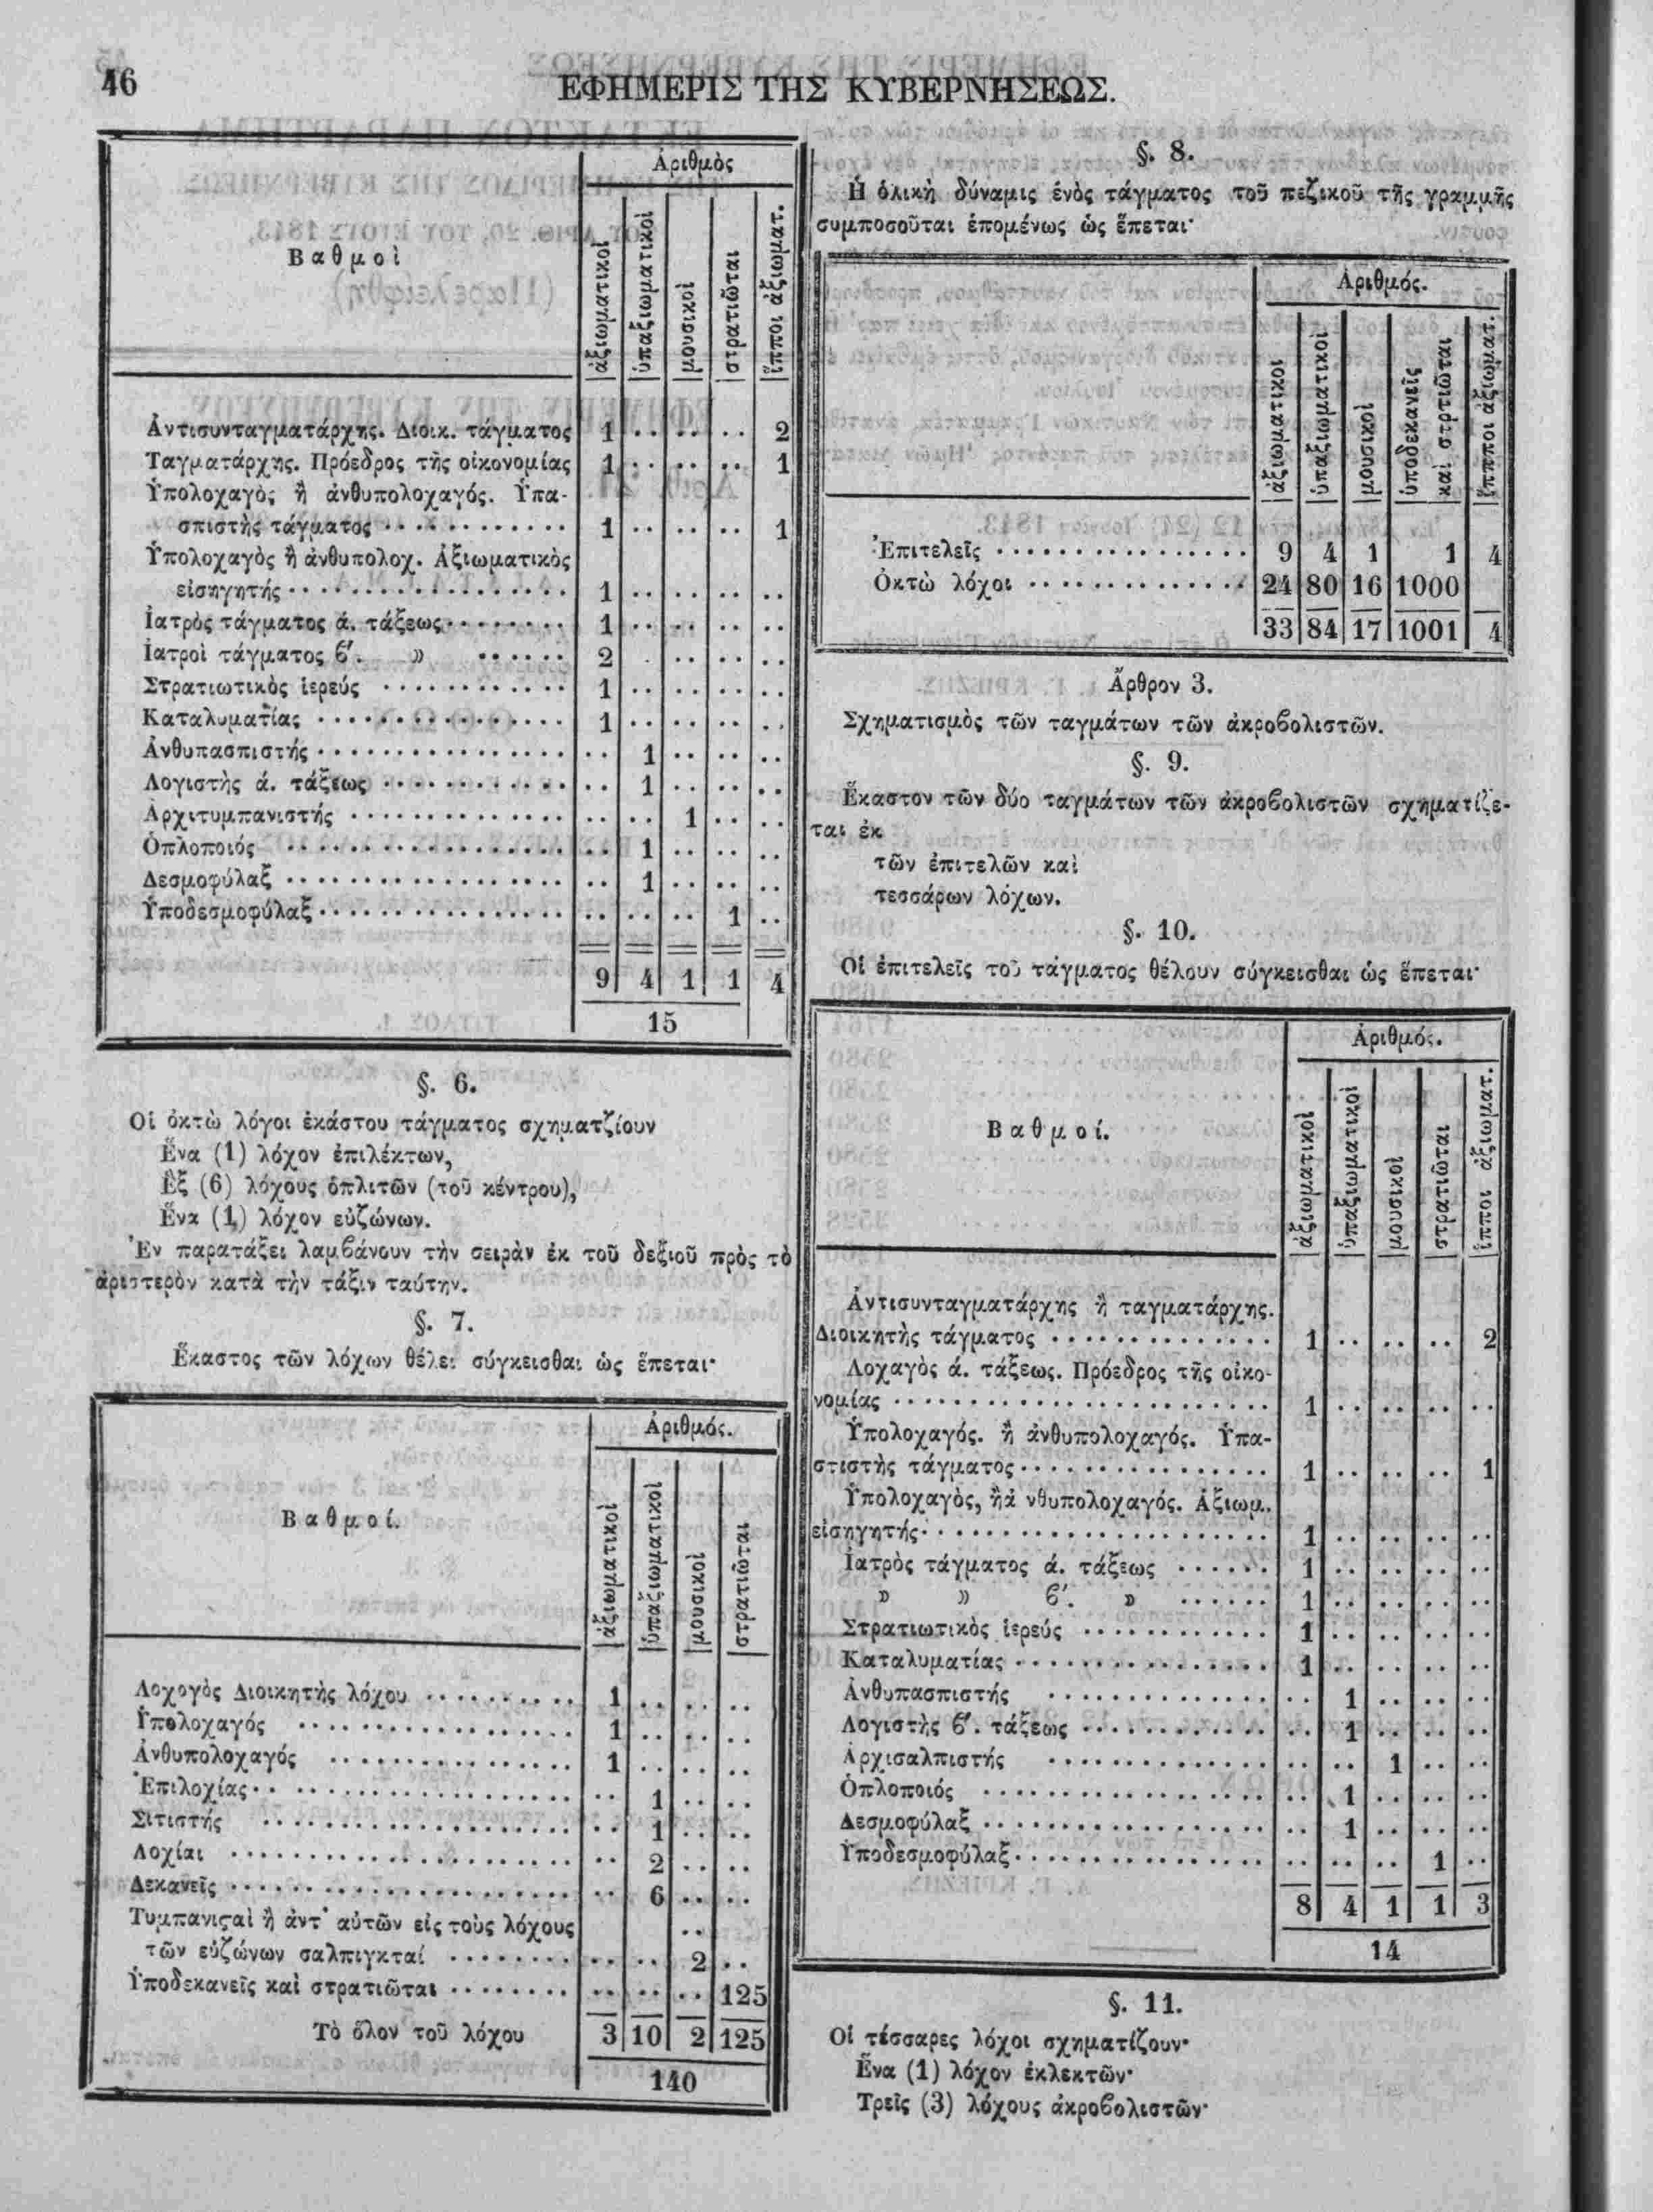 46
ΕΦΗΜΕΡΙΣ ΤΗΣ ΚΥΒΕΡΝΗΣΕΩΣ.
Βαθμοὶ
Ἀριθμὸς
ἀξιωματικοὶ
ὑπαξιωματικοὶ
μουσικοὶ
στρατιῶται
ἵπποι ἀξιωματ.
Ἀντισυνταγματάρχης. Διοικ. τάγματος 1 ·· ·· ·· 2
Ταγματάρχης. Πρόεδρος τῆς οἰκονομίας 1 ·· ·· ·· 1
Ὑπολοχαγὸς ἢ ἀνθυπολοχαγός. Ὑπα-
σπιστὴς τάγματος ············ 1 ·· ·· ·· 1
Ὑπολοχαγὸς ἢ ἀνθυπολοχ. Ἀξιωματικὸς
εἰσηγητής ·················· 1 ·· ·· ·· ··
Ἰατρὸς τάγματος ά. τάξεως ········ 1 ·· ·· ·· ··
Ἰατροὶ τάγματος ϐ′. » ······ 2 · ·· ·· ··
Στρατιωτικὸς ἱερεύς ············ 1 ·· ·· ·· ··
Καταλυματίας ················ 1 ·· ·· ·· ··
Ἀνθυπασπιστής ················ ·· 1 ·· ·· ··
Λογιστὴς ά. τάξεως ············ ·· 1 ·· ·· ··
Ἀρχιτυμπανιστής ·············· ·· ·· 1 ·· ··
Ὁπλοποιός ·················· ·· 1 ·· ·· ··
Δεσμοφύλαξ ·················· ·· 1 ·· ·· ··
Ὑποδεσμοφύλαξ ················ ·· ·· ·· 1 ··
9 4 1 1 4
15
§. 6.
Οἱ ὀκτὼ λόγοι ἑκάστου τάγματος σχηματζίουν
Ἕνα (1) λόχον ἐπιλέκτων,
Ἓξ (6) λόχους ὁπλιτῶν (τοῦ κέντρου),
Ἕνα (1) λόχον εὐζώνων.
Ἐν παρατάξει λαμϐάνουν τὴν σειρὰν ἐκ τοῦ δεξιοῦ πρὸς τὸ
ἀριστερὸν κατὰ τὴν τάξιν ταύτην.
§. 7.
Ἕκαστος τῶν λόχων θέλει σύγκεισθαι ὡς ἕπεται·
Βαθμοί.
Ἀριθμός.
ἀξιωματικοὶ
ὑπαξιωματικοὶ
μουσικοὶ
στρατιῶται
Λοχογὸς Διοικητὴς λόχου ·········· 1 ·· ·· ··
Ὑπολοχαγός ·················· 1 ·· ·· ··
Ἀνθυπολοχαγός ················ 1 ·· ·· ··
Ἐπιλοχίας ·················· ·· 1 ·· ··
Σιτιστής ···················· ·· 1 ·· ··
Λοχίαι ······················ ·· 2 ·· ··
Δεκανεῖς ···················· ·· 6 ·· ··
Τυμπανιϛαὶ ἢ ἀντ' αὐτῶν εἰς τοὺς λόχους ··
τῶν εὐζώνων σαλπιγκταί ········ ·· ·· 2 ··
Ὑποδεκανεῖς καὶ στρατιῶται ········ ·· ·· ·· 125
Τὸ ὅλον τοῦ λόχου 3 10 2 125
140
§. 8.
Ἡ ὁλικὴ δύναμις ἑνὸς τάγματος τοῦ πεζικοῦ τῆς γραμμῆς
συμποσοῦται ἑπομένως ὡς ἕπεται·
Ἀριθμός.
ἀξιωματικοὶ
ὑπαξιωματικοὶ
μουσικοὶ
ὑποδεκανεῖς
καὶ στρτιῶται
ἵπποι ἀξιωματ.
Ἐπιτελεῖς ················ 9 4 1 1 4
Ὀκτὼ λόχοι ·············· 24 80 16 1000
33 84 17 1001 4
Ἄρθρον 3.
Σχηματισμὸς τῶν ταγμάτων τῶν ἀκροβολιστῶν.
§. 9.
Ἕκαστον τῶν δύο ταγμάτων τῶν ἀκροϐολιστῶν σχηματίζε-
ται ἐκ
τῶν ἐπιτελῶν καὶ
τεσσάρων λόχων.
§. 10.
Οἱ ἐπιτελεῖς τοῦ τάγματος θέλουν σύγκεισθαι ὡς ἕπεται·
Βαθμοί.
Ἀριθμός.
ἀξιωματικοὶ
ὑπαξιωματικοὶ
μουσικοὶ
στρατιῶται
ἵπποι ἀξιωματ.
Ἀντισυνταγματάρχης ἢ ταγματάρχης.
Διοικητὴς τάγματος ·············· 1 ·· ·· ·· 2
Λοχαγὸς ά. τάξεως. Πρόεδρος τῆς οἰκο-
νομίας ························ 1 ·· ·· ·· ··
Ὑπολοχαγός. ἢ ἀνθυπολοχαγός. Ὑπα-
στιστὴς τάγματος ················ 1 ·· ·· ·· 1
Ὑπολοχαγὸς, ἢἀ νθυπολοχαγός. Ἀξιωμ.
εἰσηγητής ······················ 1 ·· ·· ·· ··
Ἰατρὸς τάγματος ά. τάξεως ······ 1 ·· ·· ·· ··
» » ϐ′. » ······ 1 ·· ·· ·· ··
Στρατιωτικὸς ἱερεύς ············ 1 ·· ·· ·· ··
Καταλυματίας ················ 1 ·· ·· ·· ··
Ἀνθυπασπιστής ·············· ·· 1 ·· ·· ··
Λογιστὴς ϐ′. τάξεως ············ ·· 1 ·· ·· ··
Ἀρχισαλπιστής ·············· ·· ·· 1 ·· ··
Ὁπλοποιός ·················· ·· 1 ·· ·· ··
Δεσμοφύλαξ ·················· ·· 1 ·· ·· ··
Ὑποδεσμοφύλαξ ················ ·· ·· ·· 1 ··
8 4 1 1 3
14
§. 11.
Οἱ τέσσαρες λόχοι σχηματίζουν·
Ἕνα (1) λόχον ἐκλεκτῶν·
Τρεῖς (3) λόχους ἀκροϐολιστῶν·